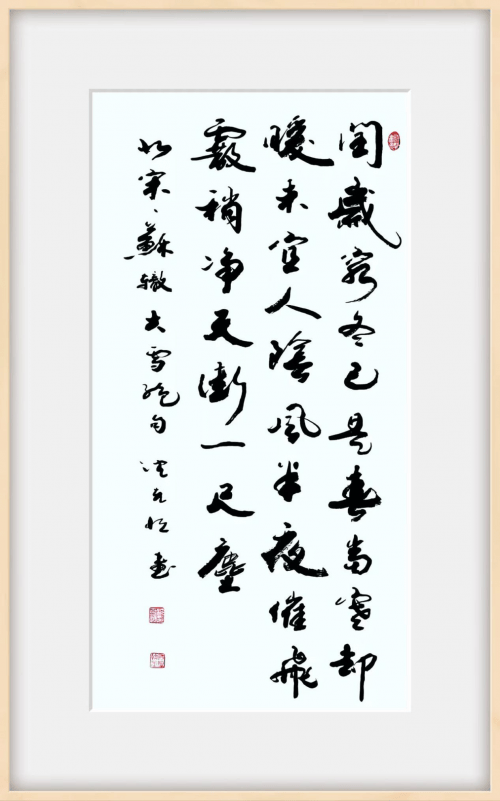 閏歲窮冬已是春當寒却
暖未宜人陰風半夜催飛
霰稍净天街一尺塵
北宋蘇轍大雪絶句 書